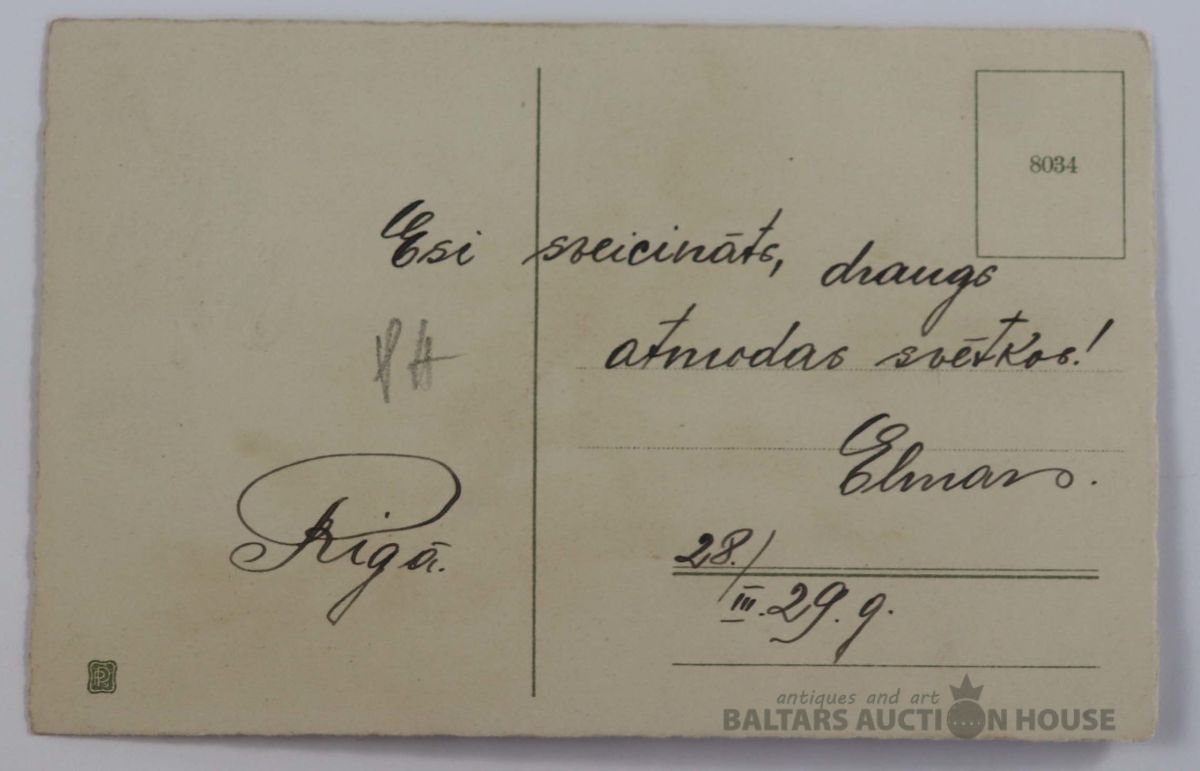 8034
Esi sveicināts, draugs
atmodas svētkos!
Elmars.
Rīgā.
28./III.29.g.
antiques and art
BALTARS AUCTION HOUSE